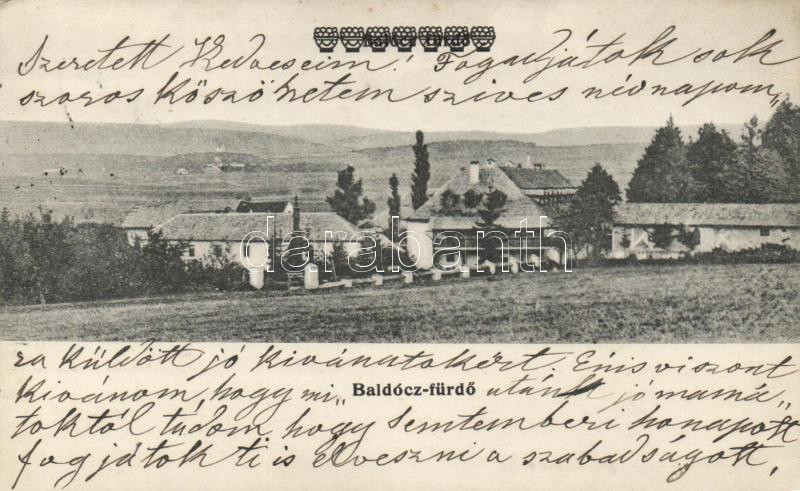 Szeretett Kedveseim! Fogadjátok sok
szoros köszönetem szives névnapom„
darabanth
ra küldött jó kivánatokért Én is viszont
kivánom, hogy mi„ Baldócz-fürdő utánk jó mamá„
toktól tudom hogy Semtemberi honapott
fogjátok ti is elveszni a szabadságott,